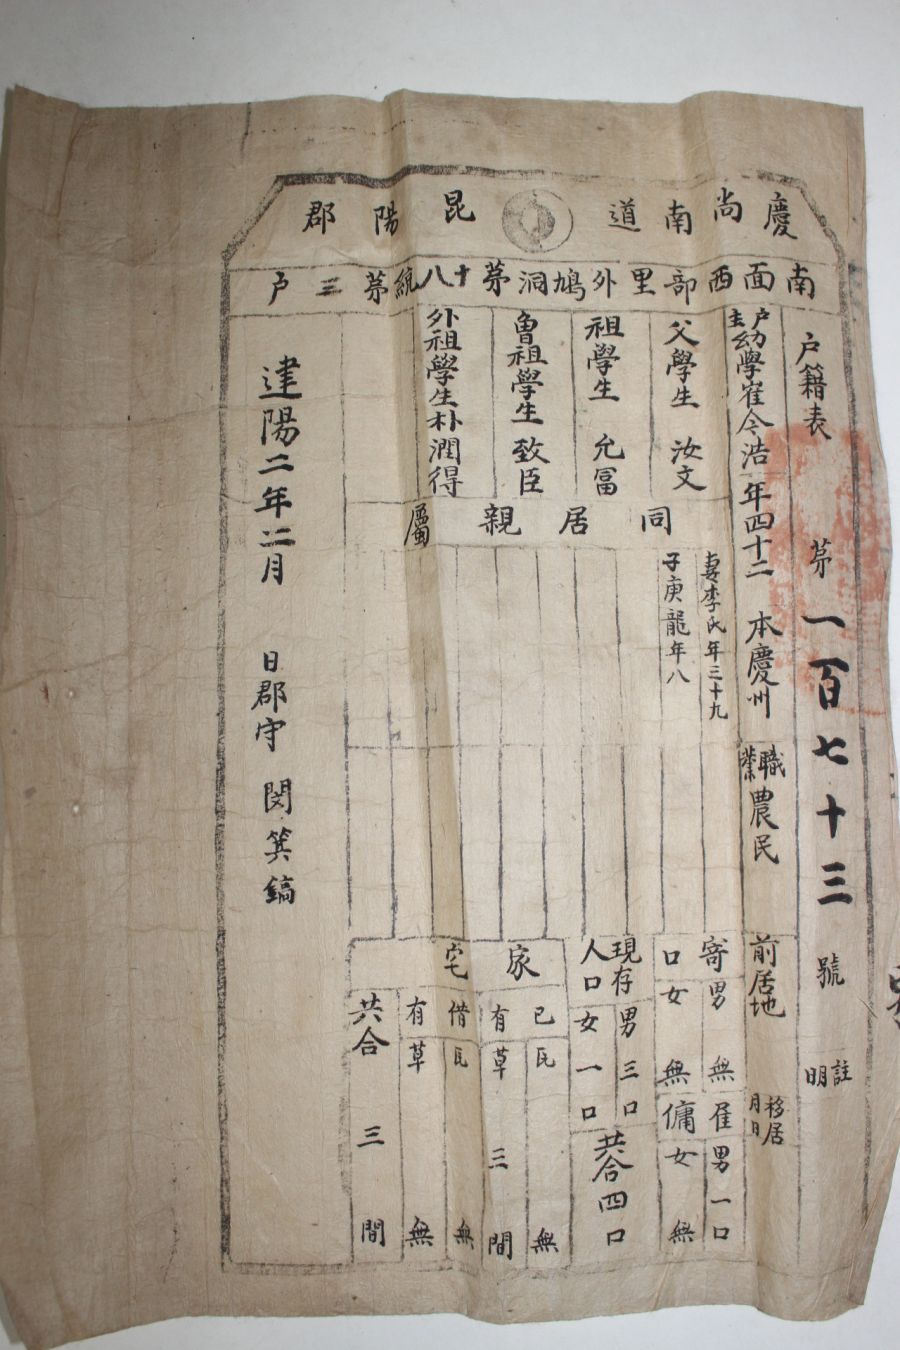 慶尙南道 昆陽郡
南面西部里外鳩洞第十八統第三户
户籍表 第一百七十三號 註明
户主幼學崔令浩 年四十二 本慶州 職業農民 前居地 移居月日
父學生 汝文
祖學生 允冨
曾祖學生 致臣
外祖學生朴潤得
同居親屬
妻李氏年三十九
子庚龍年八
寄口 男無 女無
雇傭 男一口 女無
現存人口 男三口 女一口 共合四口
家宅
已有 瓦無 草三間
借有 瓦無 草無
共合三間
建陽二年二月 日郡守 閔箕鎬